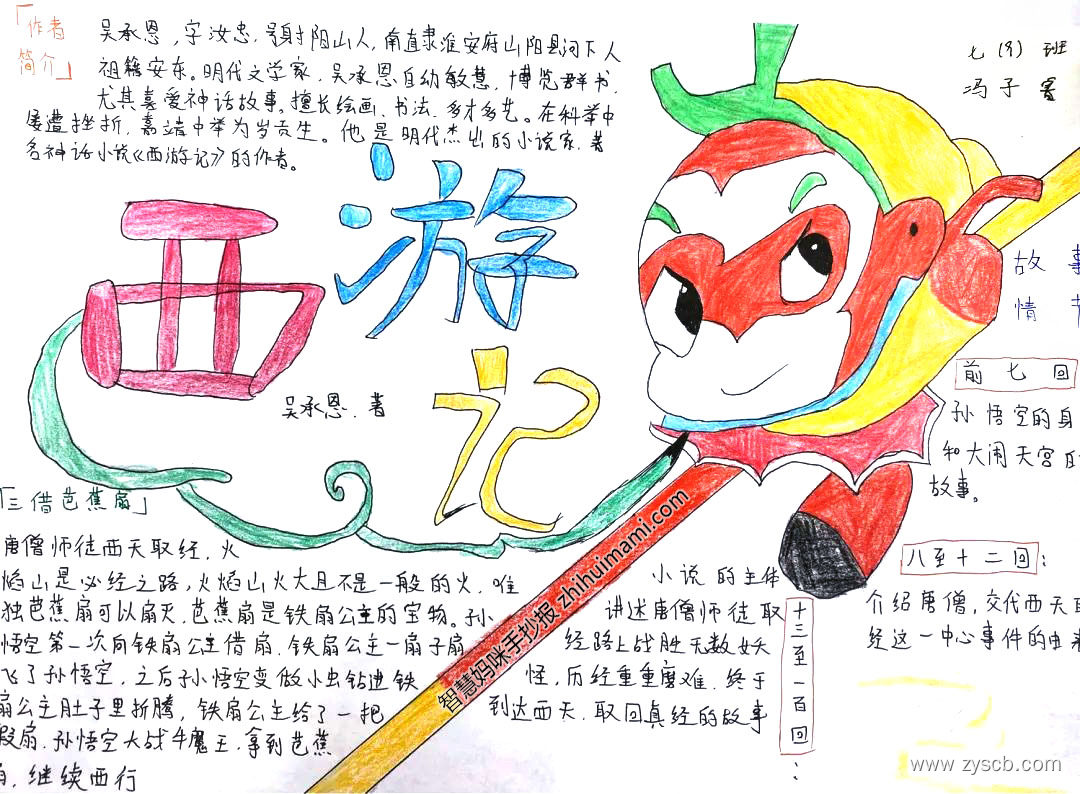 「作者
简介」
吴承恩,字汝忠,号射阳山人,南直隶淮安府山阳县河下人
祖籍安东。明代文学家,吴承恩自幼敏慧,博览群书,
尤其喜爱神话故事。擅长绘画、书法,多才多艺。在科举中
屡遭挫折,嘉靖中举为岁贡生。他是明代杰出的小说家,著
名神话小说《西游记》的作者。
七(9)班
冯子
西游记
吴承恩.著
故事
情节
前七回
孙悟空的身
和大闹天宫的
故事。
八至十二回:
介绍唐僧,交代西天取
经这一中心事件的由来
十三至一百回:
小说的主体
讲述唐僧师徒取
经路上战胜无数妖
怪,历经重重磨难,终于
到达西天,取回真经的故事
「三借芭蕉扇」
唐僧师徒西天取经,火
焰山是必经之路,火焰山火大且不是一般的火,唯
独芭蕉扇可以扇灭,芭蕉扇是铁扇公主的宝物。孙
悟空第一次向铁扇公主借扇,铁扇公主一扇子扇
飞了孙悟空,之后孙悟空变做小虫钻进铁
扇公主肚子里折腾,铁扇公主给了一把
假扇.孙悟空大战牛魔王,拿到芭蕉
扇,继续西行
智慧妈咪手抄报 zhihuimami.com
www.zyscb.com